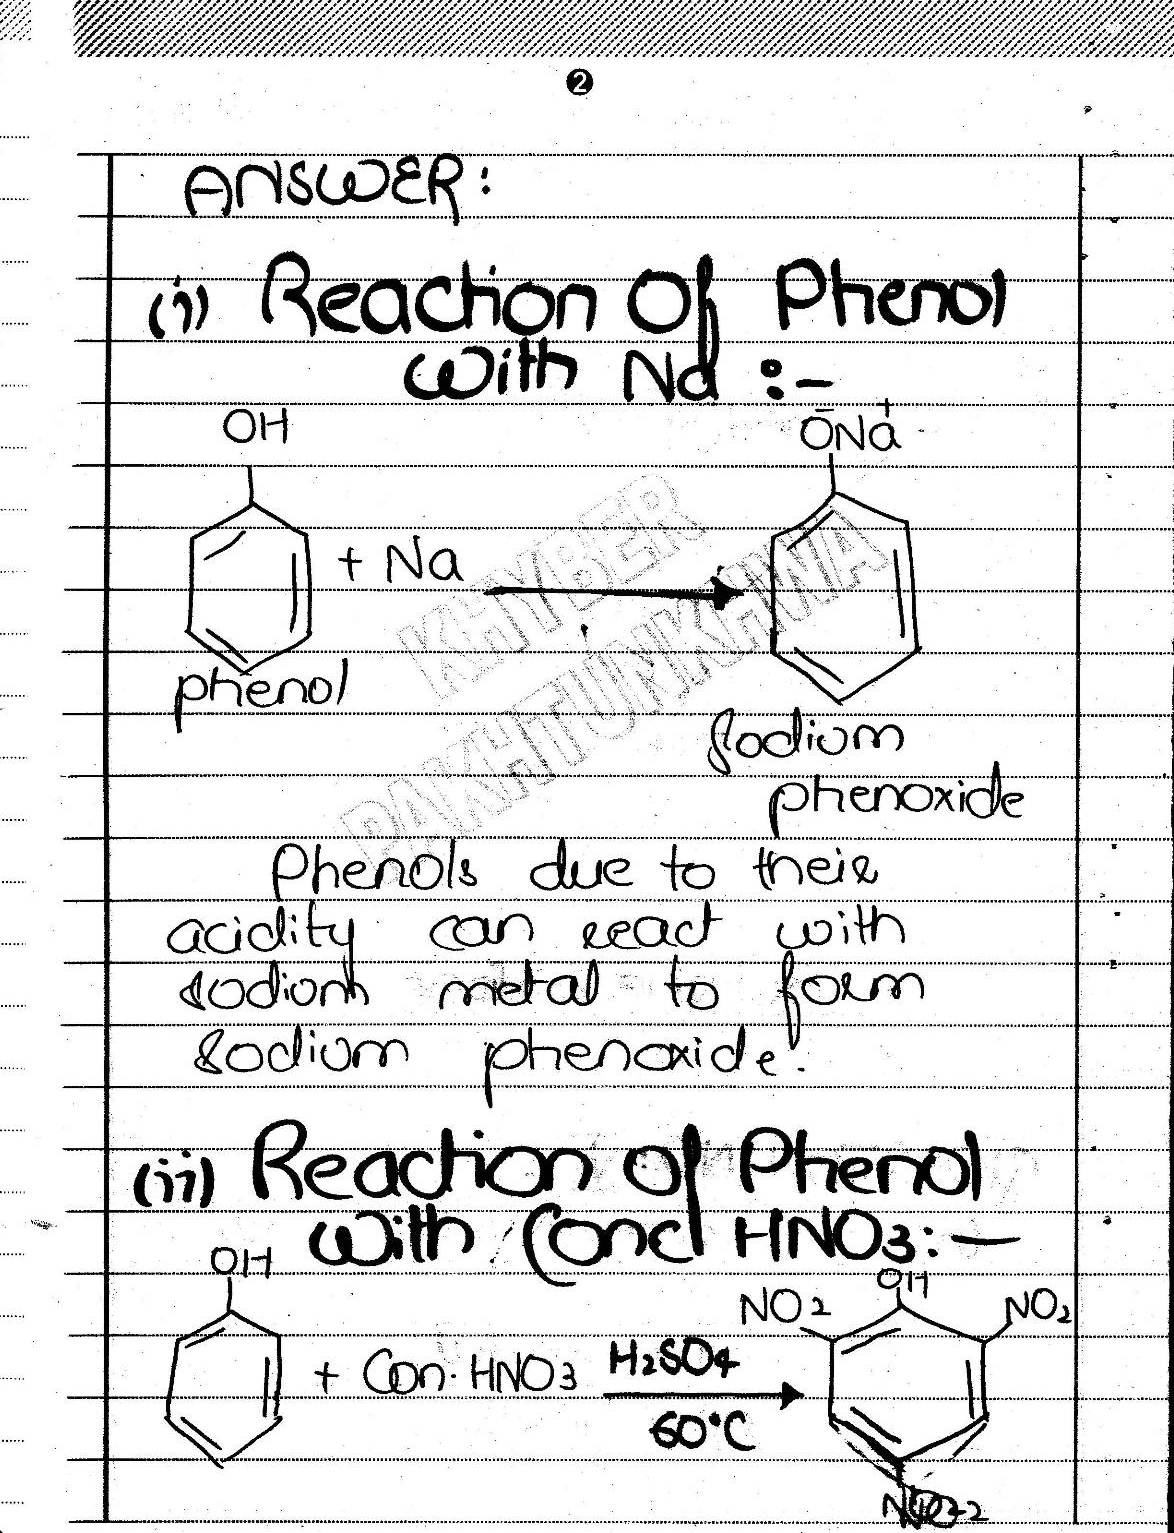 2
ANSWER:
(i) Reaction Of Phenol
with Na :-
OH
ŌNa⁺
+ Na
KHYBER
PAKHTUNKHWA
phenol
Sodium
phenoxide
Phenols due to their
acidity can react with
sodium metal to form
sodium phenoxide.
(ii) Reaction of Phenol
with Concl HNO3:-
OH
OH
NO2
NO2
+ Con. HNO3
H2SO4
60°C